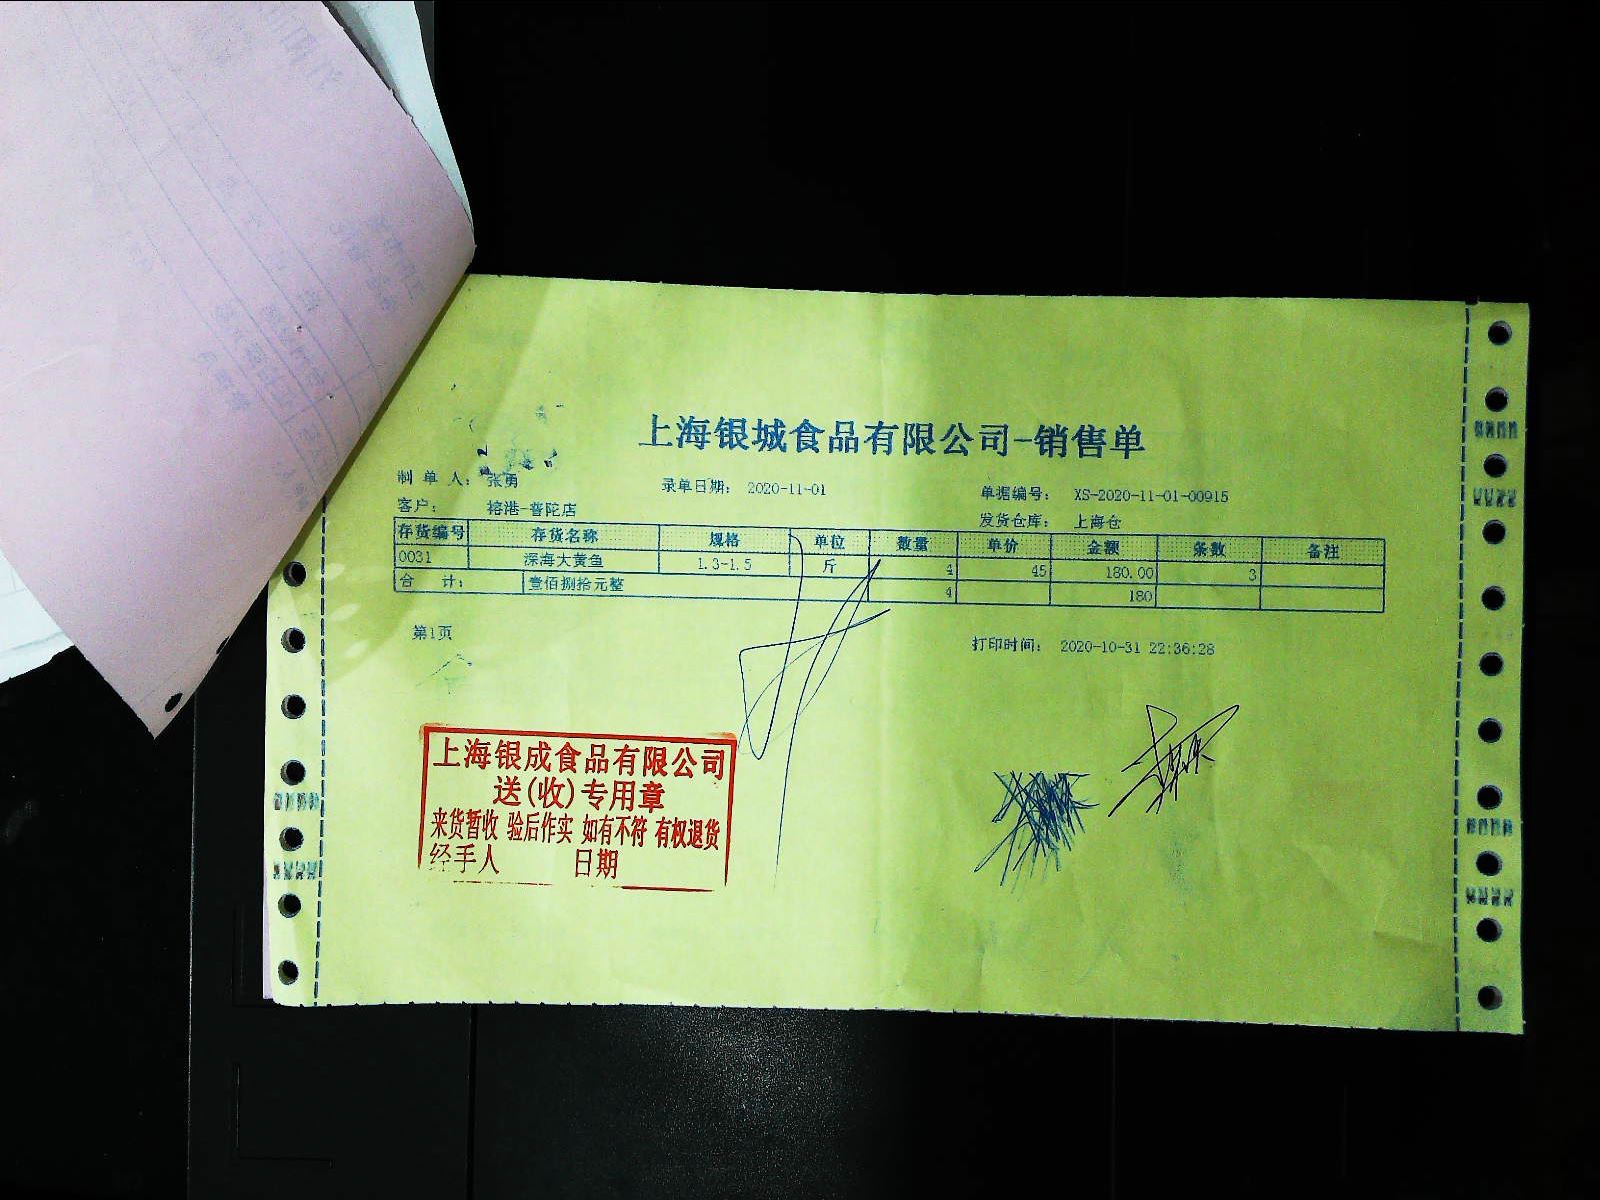 上海银城食品有限公司-销售单
制 单 人： 张勇 录单日期： 2020-11-01 单据编号： XS-2020-11-01-00915
客户： 榕港-普陀店 发货仓库： 上海仓
存货编号 存货名称 规格 单位 数量 单价 金额 条数 备注
0031 深海大黄鱼 1.3-1.5 斤 4 45 180.00 3
合 计： 壹佰捌拾元整 4 180
第1页 打印时间： 2020-10-31 22:36:28
上海银成食品有限公司
送(收)专用章
来货暂收 验后作实 如有不符 有权退货
经手人 日期